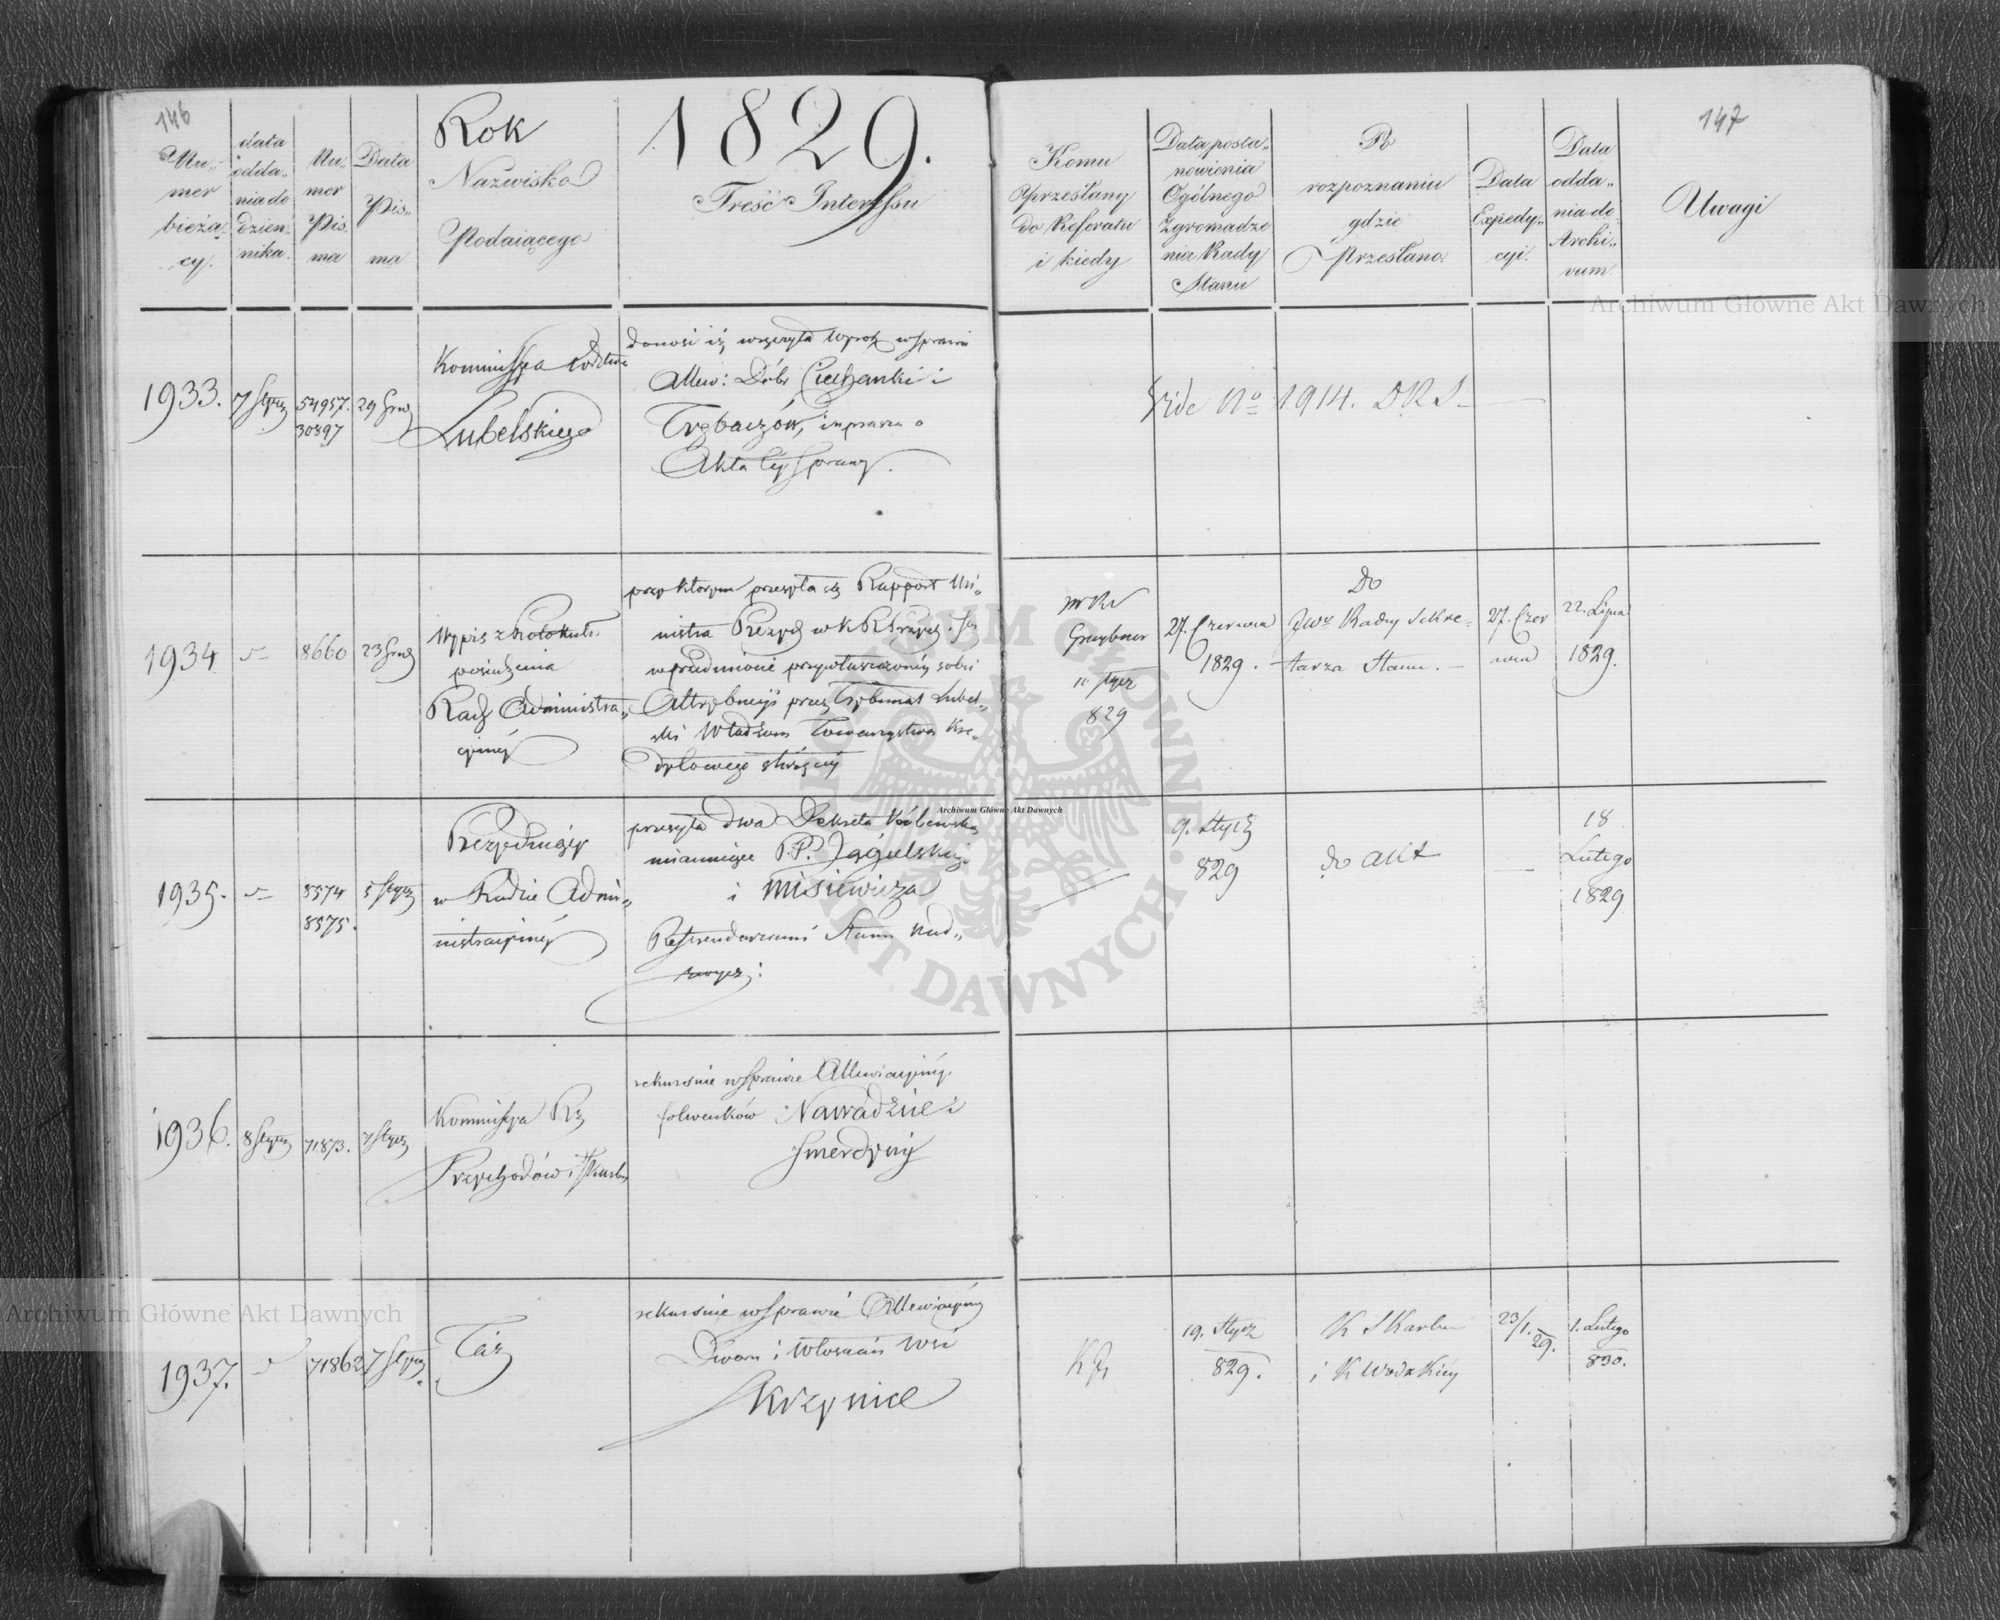 146
Rok 1829.
Nu-
mer
bieżą-
cy.
data
odda-
nia do
dzien-
nika.
Nu-
mer
Pis-
ma
Data
Pis-
ma
Nazwisko
Podaiącego
Treść Interessu
Komu
Przesłany
do Referatu
i kiedy
Data posta-
nowienia
Ogólnego
Zgromadze
nia Rady
Stanu
Po
rozpoznaniu
gdzie
Przesłano.
Data
Expedy-
cyi.
Data
odda-
nia do
Archi-
vum.
147
Uwagi
1933.
7 Stycz
54957.
30897
29 Grud
Kommissya
Lubelskiego
donosi iż w sprawie
Allew: Dóbr Ciechanki i
Trębaczów,
Akta tey sprawy.
Vide No 1914. D.R.S.
1934
8660
23 Grud
Wypis z Protokułu
posiedzenia
Rady Administra-
cyiney
przy którym przesyła się Rapport Mi-
nistra Prezyd w K R Przych. i Sk
w przedmiocie przywłaszczoney sobie
Attrybucyi przez Trybunał Lubel-
ski Władzom Towarzystwa Kre-
dytowego służącey
JW Rv
Grzybow
10 Stycz
829
27. Czerwca
1829.
Do
JWo Radcy Sekre-
tarza Stanu.
27. Czer
wca
22. Lipca
1829.
1935.
8574
8575.
5 Stycz
Prezyduiący
w Radzie Admi-
nistracyiney
przesyła dwa Dekreta Królewskie
mianuiące P.P. Jągielskiego
i Misiewicza
Referendarzami Stanu Nad-
zwycz:
9. Stycz
829
do akt
18
Lutego
1829
1936.
8 Stycz
71873.
7 Stycz
Kommissya Rz
Przychodów i Skarbu
rekursuie w sprawie Allewiacyiney
folwarków Nawodzice i
Smerdyny
1937.
71862
7 Stycz
Taż
rekursuie w sprawie Allewiacyiney
Dworu i Włościan Wsi
Skrzynice
19. Stycz
829.
K Skarbu
i K Wodzkiey
23/1. 29.
1. Lutego
830.
Archiwum Główne Akt Dawnych
Archiwum Główne Akt Dawnych
Archiwum Główne Akt Dawnych
ARCHIWUM GŁÓWNE AKT DAWNYCH